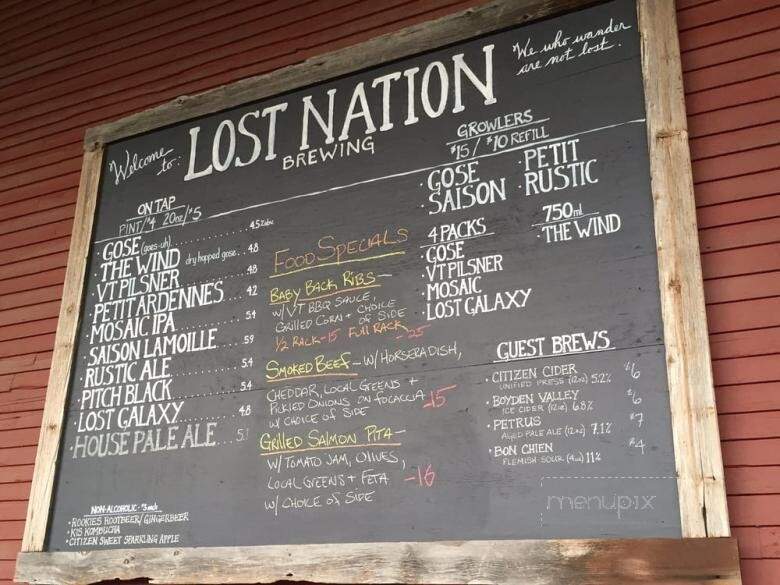 Welcome to:
LOST NATION
BREWING
We who wander
are not lost.
ON TAP
PINT/$4 20oz/$5
· GOSE (goes-uh) ... 4.5%abv
· THE WIND dry hopped gose... 4.8
· VT PILSNER ... 4.8
· PETIT ARDENNES ... 4.2
· MOSAIC IPA ... 5.4
· SAISON LAMOILLE ... 5.9
· RUSTIC ALE ... 5.4
· PITCH BLACK ... 5.4
· LOST GALAXY ... 4.8
· HOUSE PALE ALE ... 5.1
NON-ALCOHOLIC · $3 each
· ROOKIES ROOTBEER/GINGERBEER
· KIS KOMBUCHA
· CITIZEN SWEET SPARKLING APPLE
FOOD SPECIALS
BABY BACK RIBS -
W/ VT BBQ SAUCE,
GRILLED CORN + CHOICE
OF SIDE
1/2 RACK-15 FULL RACK-25
SMOKED BEEF - W/ HORSERADISH,
CHEDDAR, LOCAL GREENS +
PICKLED ONIONS ON FOCACCIA
W/ CHOICE OF SIDE -15
GRILLED SALMON PITA -
W/ TOMATO JAM, OLIVES,
LOCAL GREENS + FETA
W/ CHOICE OF SIDE -16
GROWLERS
$15/ $10 REFILL
· GOSE · PETIT
· SAISON · RUSTIC
4 PACKS
· GOSE
· VT PILSNER
· MOSAIC
· LOST GALAXY
750ml
· THE WIND
GUEST BREWS
· CITIZEN CIDER $6
UNIFIED PRESS (12oz) 5.2%
· BOYDEN VALLEY $6
ICE CIDER 6.8%
· PETRUS $7
AGED PALE ALE (12oz) 7.1%
· BON CHIEN $4
FLEMISH SOUR (4oz) 11%
menupix